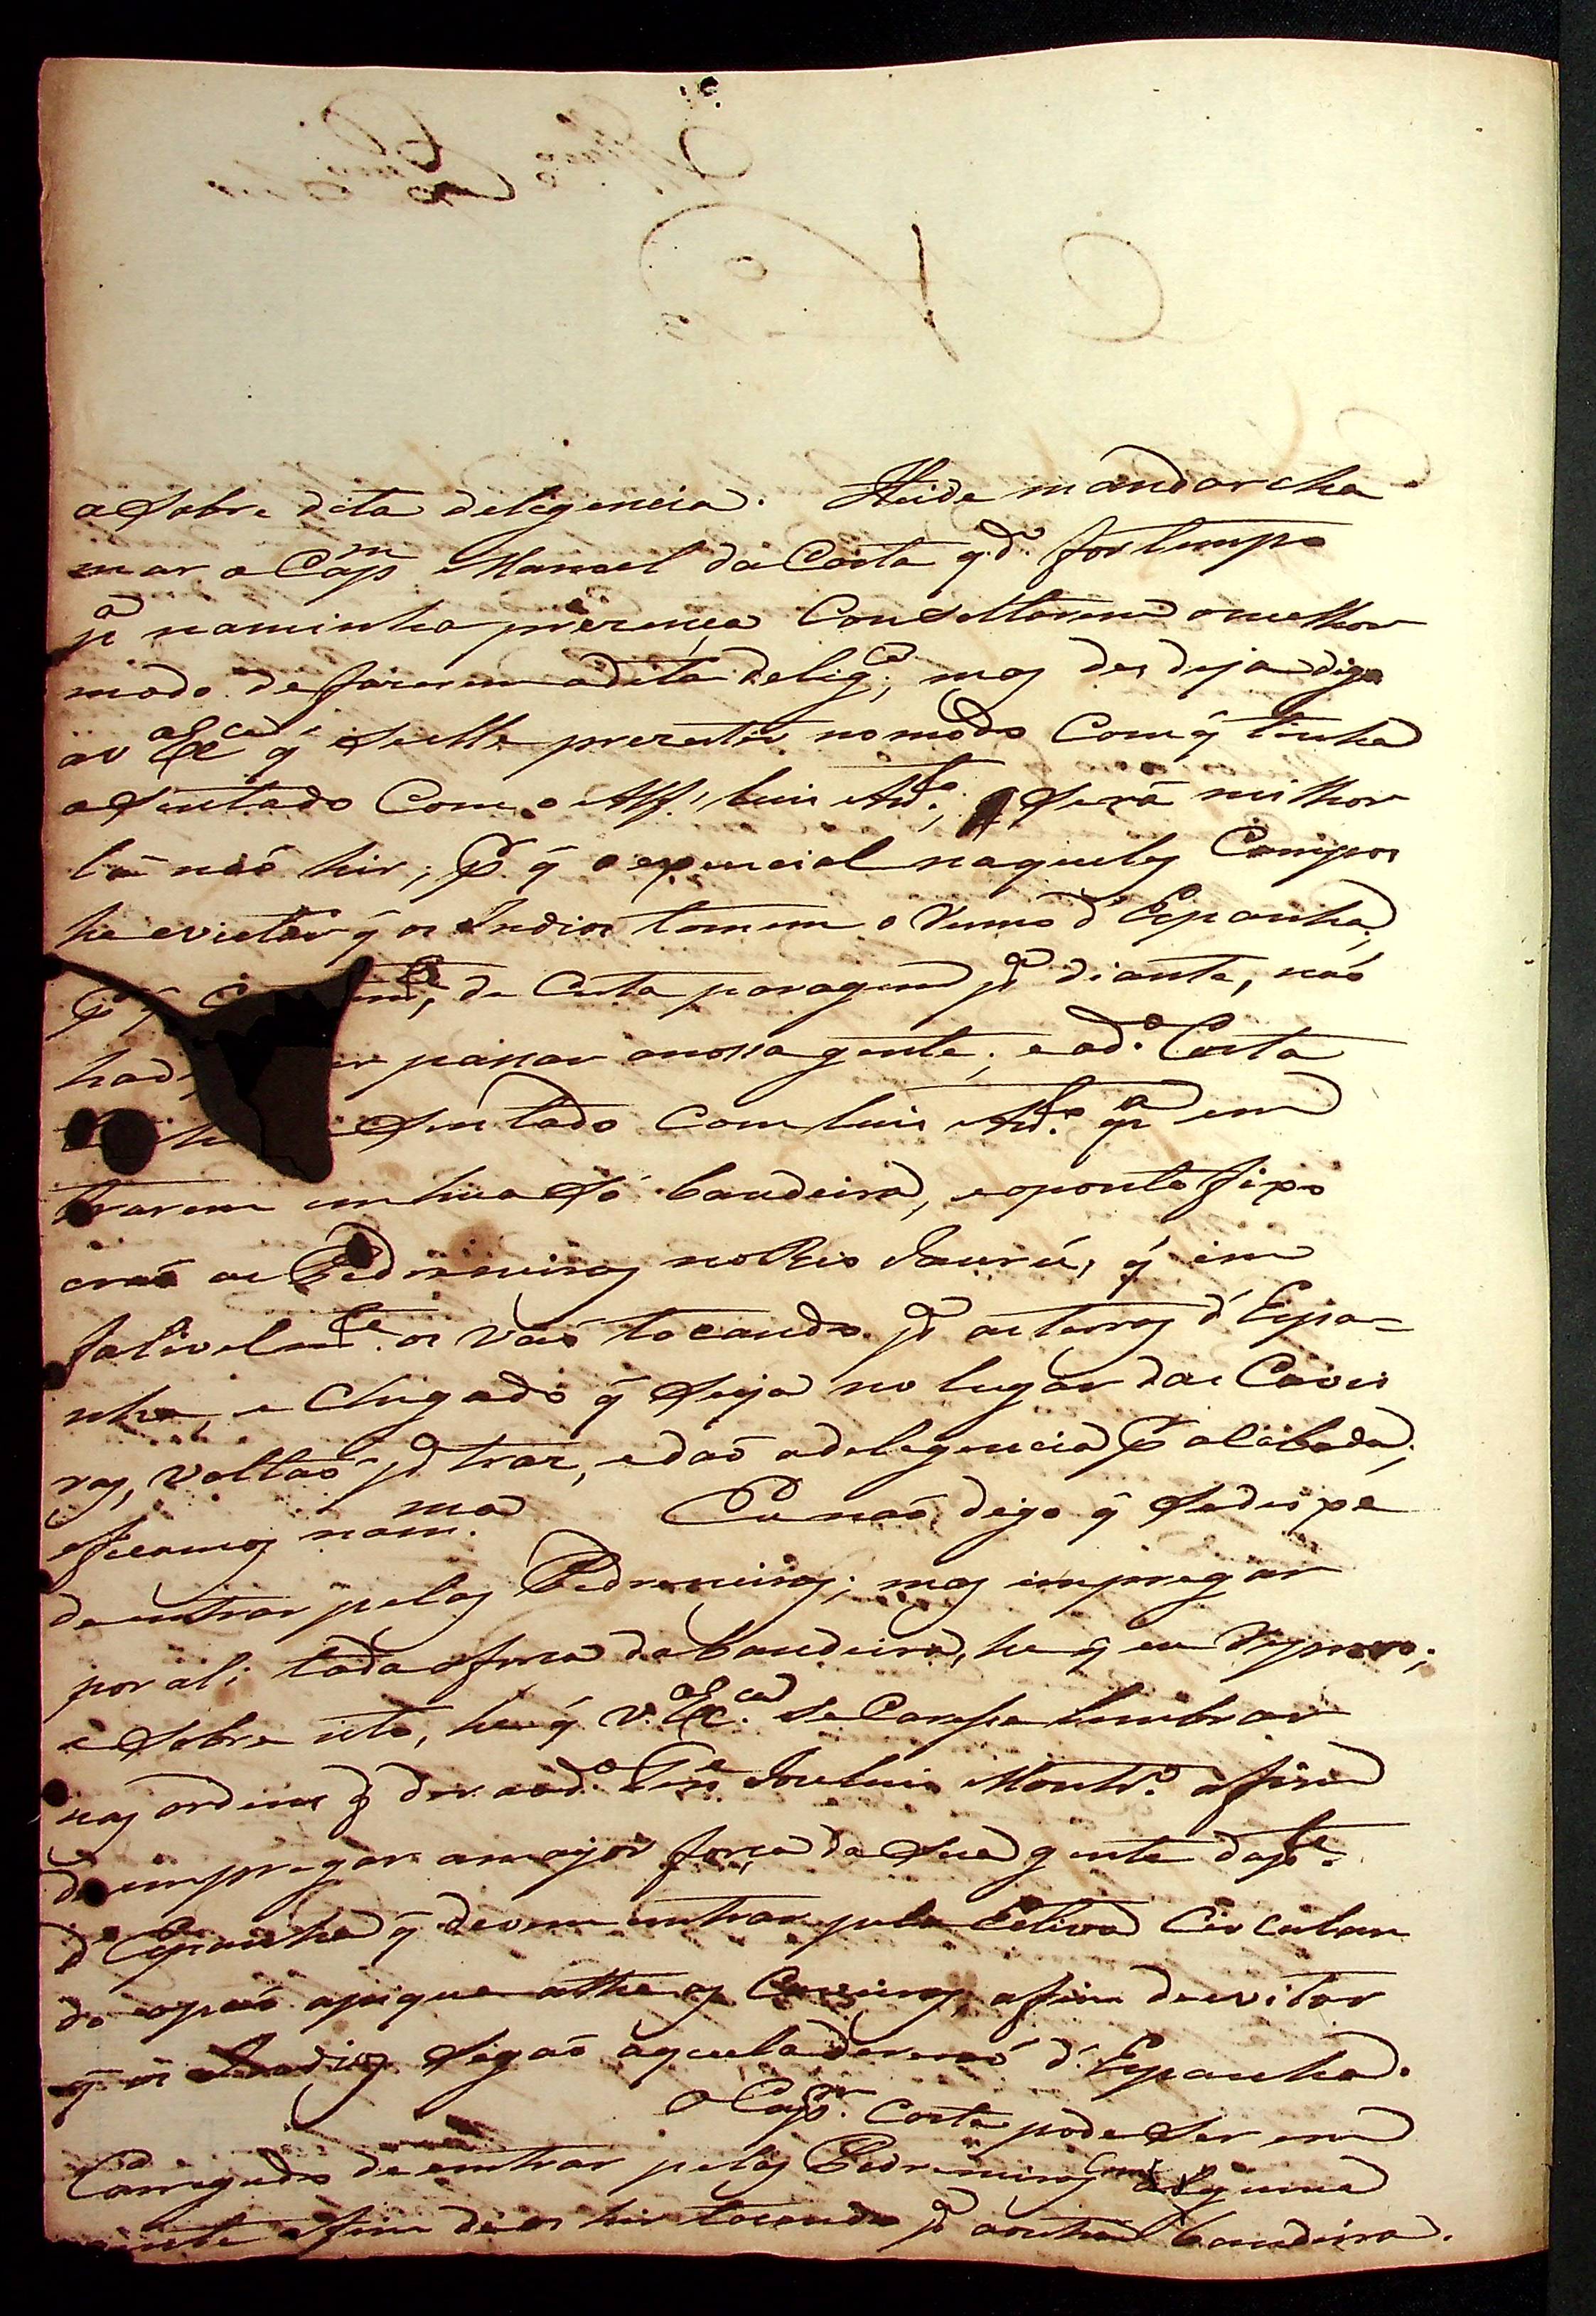 a sobre dita deligencia. Heide mandar cha
mar o Capm Manoel da Costa qdo for tempo
pa na minha prezença Consultarem o melhor
modo de fazerem a dita deligca, mas des de ja digo
a V Exca q se elle prezestir no modo Com q tinha
asentado Com o Alfs Luis Anto, será milhor
lá naõ hir; P. q o esencial naqueles Campos
he evietar q os Indios tomem o Rumo d'Espanha,
P q de Certa paragem pa diante, naõ
passar a nossa gente; e o do Costa
asentado Com Luis Anto pa en
trarem em hua só bandeira, e o ponto fixo
as Pedreneiras no Rio Jaurú, q em
falivelmte os vaõ tocando pa as terras d'Espa=
nha, e Chegado q seja no lugar das Cavei
ras, voltaõ pa traz, e daõ a deligencia P acabada;
e ficamos na mma Eu naõ digo q se dispe
de entrar pelas Pedreneiras; mas impregar
por ali toda a forca da bandeira, he q eu Reprovo;
e sobre isto, he q V. Exca. se Campa lembrar
nas ordens q der ao do Tene Joze Luis Montro. afim
de impregar a mayor força da sua gente da pte.
d'Espanha q devem entrar pela Estiva Circulan
do o pais apique athe as Caveiras, afim de evitar
q os Indios sigaõ aquela d'Espanha.
O Capm. Costa pode ser en
Carregado de entrar pelas Pedreneiras Com alguma
gente afim de os hir tocando pa a outra bandeira.